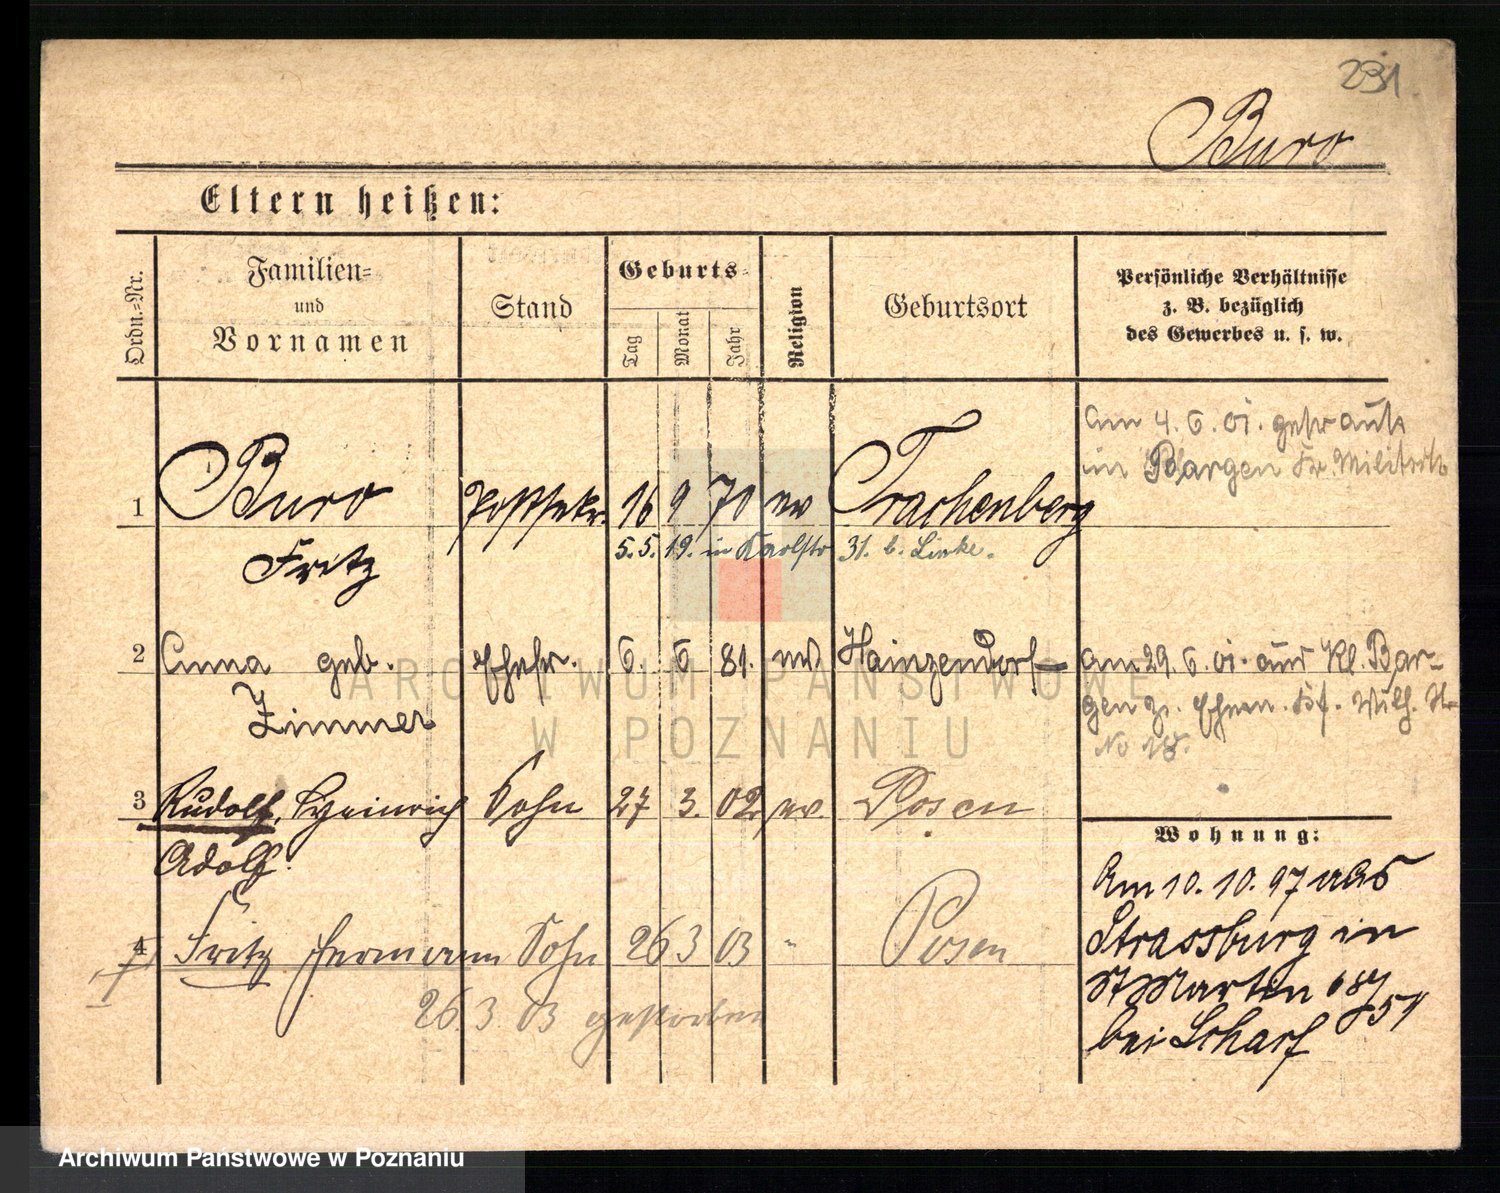 231
Buro
Eltern heißen:
Ordn.=Nr.
Familien=
und
Vornamen
Stand
Geburts=
Tag
Monat
Jahr
Religion
Geburtsort
Persönliche Verhältnisse
z. B. bezüglich
des Gewerbes u. s. w.
am 4. 6. 01. getraut
in Bargen
1 Buro Postsekr. 16 9 70 ev Trachenberg
Fritz
5. 5. 19. in Karlstr 31. b. Linke.
2 Anna geb. Ehefr. 6. 6 81. ev Hainzendorf am 29. 6. 01. aus Kl. Bar-
Zimmer gen z. Ehem.
No 18.
3 Rudolf, Heinrich Sohn 27 3. 02 ev. Posen
Adolf.
Wohnung:
Am 10. 10. 97 aus
4 Fritz Hermann Sohn 26 3 03 " Posen
Strassburg in
26. 3 03 gestorben
St Martin 68/
bei Scharf
ARCHIWUM PAŃSTWOWE
W POZNANIU
Archiwum Państwowe w Poznaniu